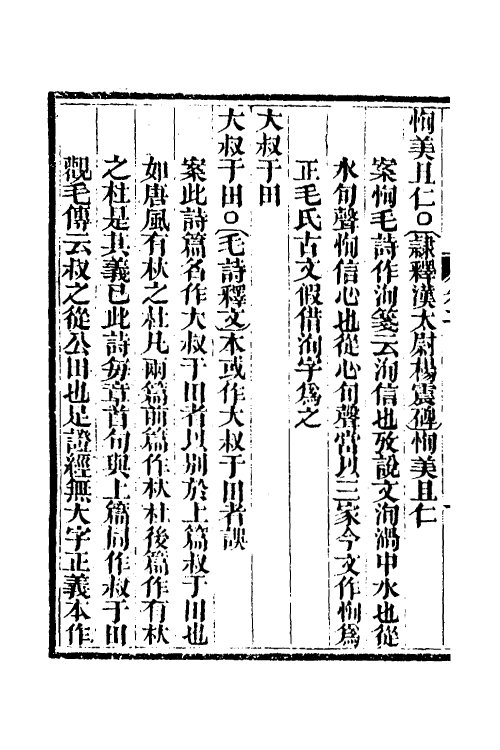 恂美且仁○隷釋漢太尉楊震碑恂美且仁
案恂毛詩作洵箋云洵信也攷說文洵渦中水也從
水旬聲恂信心也從心旬聲當以三家今文作恂爲
正毛氏古文假借洵字爲之
大叔于田
大叔于田○毛詩釋文本或作大叔于田者誤
案此詩篇名作大叔于田者以別於上篇叔于田也
如唐風有杕之杜凡兩篇前篇作杕杜後篇作有杕
之杜是其義已此詩每章首句與上篇同作叔于田
觀毛傳云叔之從公田也足證經無大字正義本作